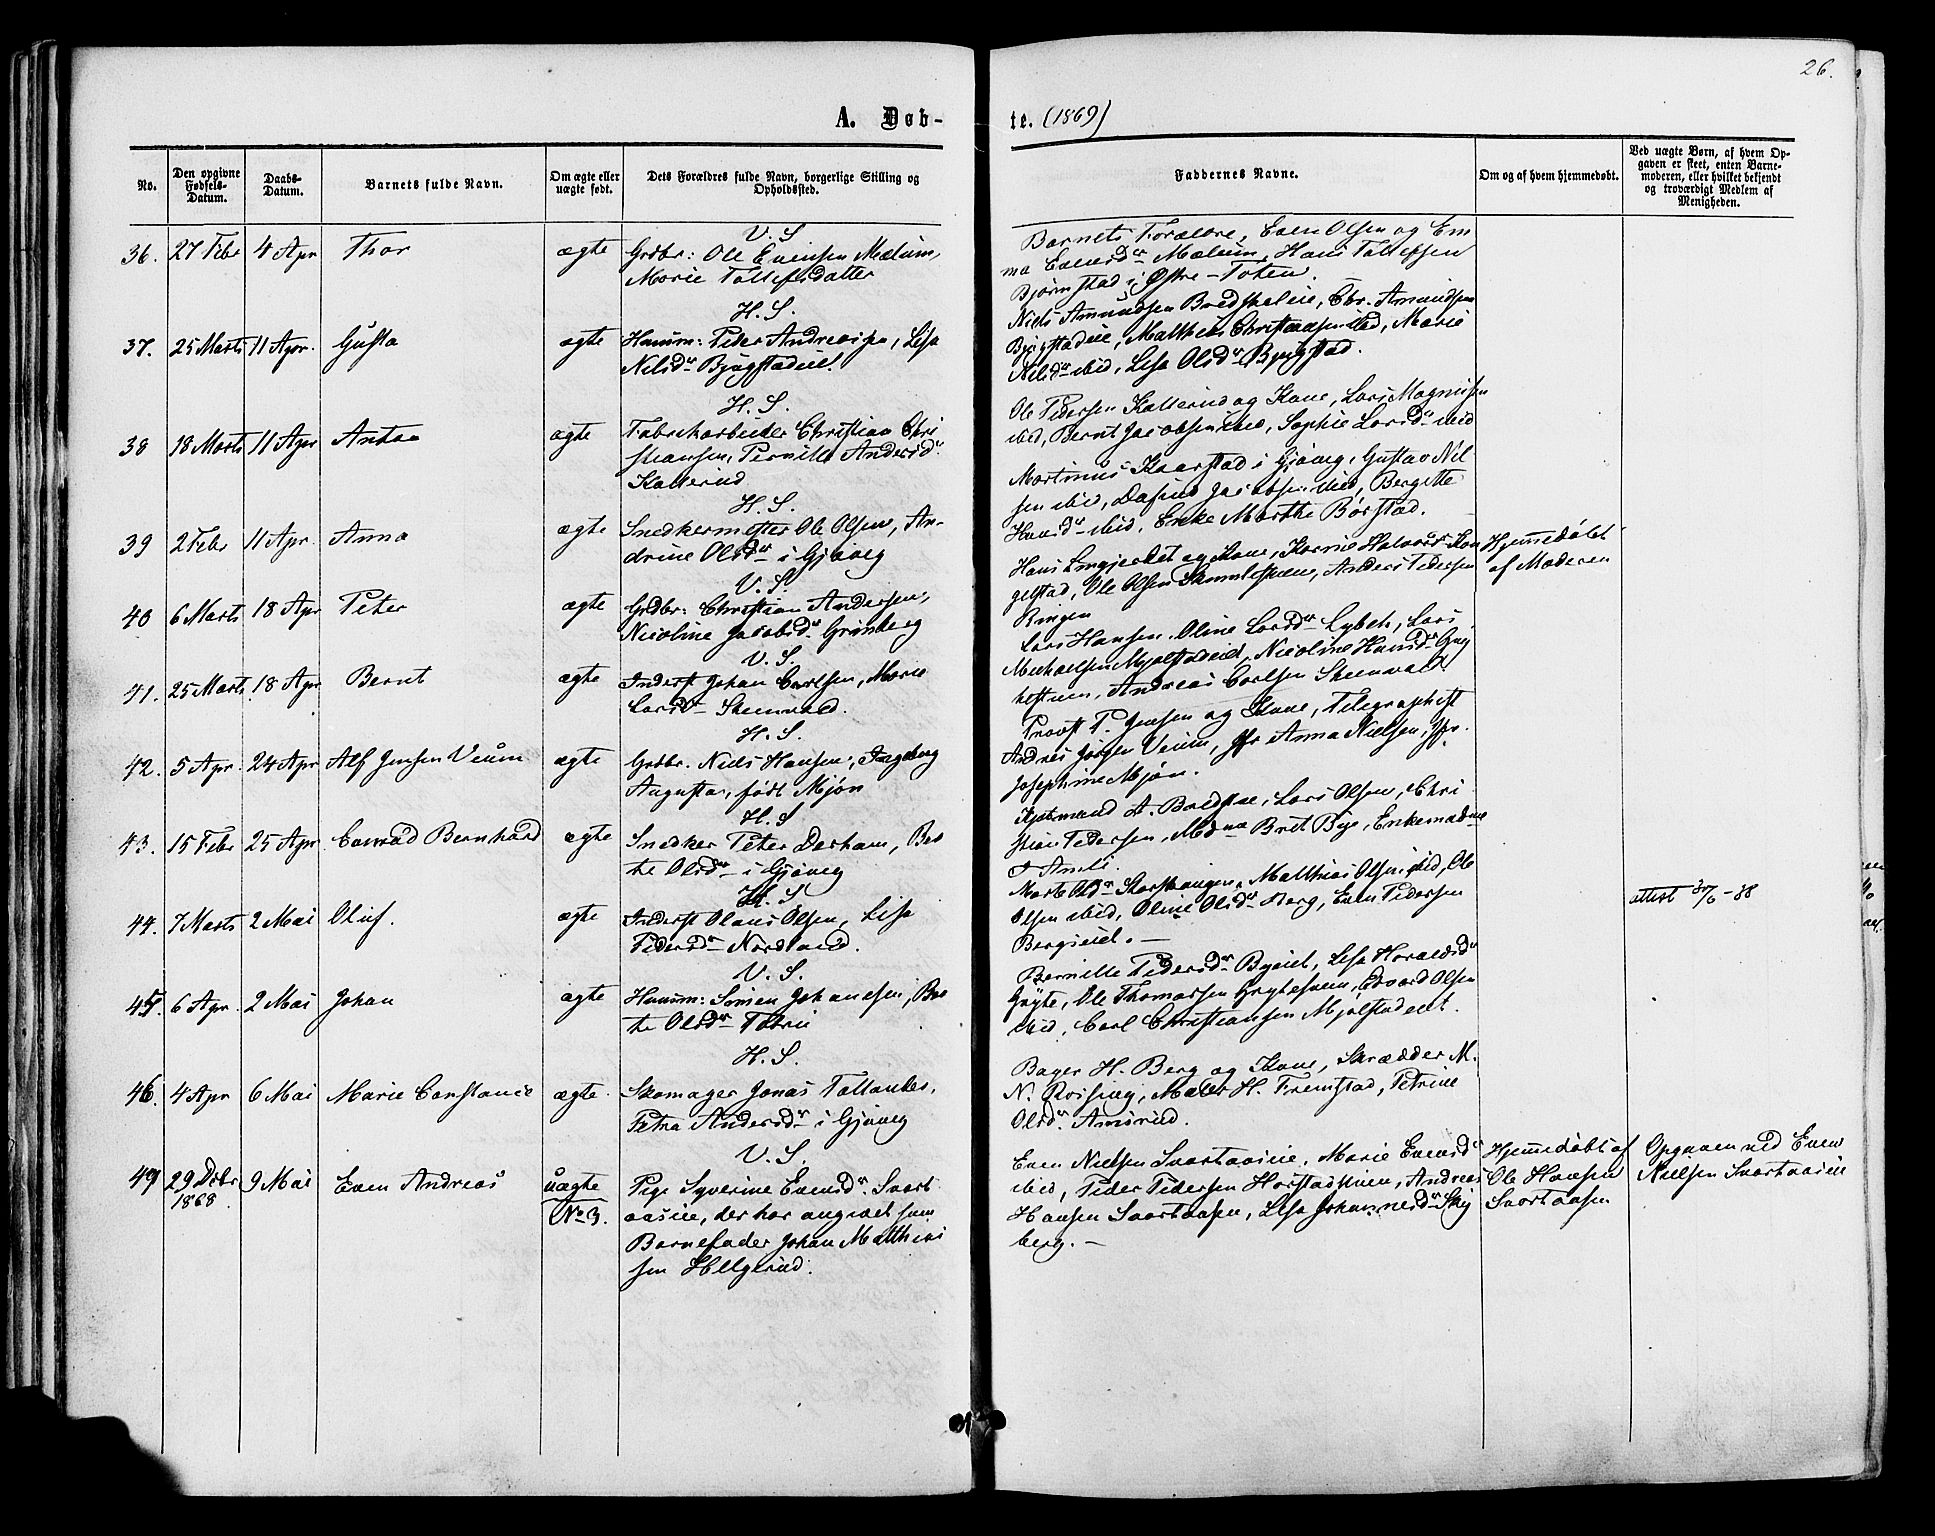 26.
A. Døb-
te. (1869)
No.
Den opgivne Fødsels-Datum.
Daabs-Datum.
Barnets fulde Navn.
Om ægte eller uægte født.
Dets Forældres fulde Navn, borgerlige Stilling og Opholdssted.
Faddernes Navne.
Om og af hvem hjemmedøbt.
Ved uægte Børn, af hvem Op-
gaven er skeet, enten Barne-
moderen, eller hvilket bekjendt
og troværdigt Medlem af
Menigheden.
V. S
36. 27 Febr 4 Apr Thor ægte Grdbr: Ole Evensen Mælum,
Marie Tollefsdatter
Barnets Forældre, Even Olsen og Em
ma Evensdr Mælum, Hans Tollefsen
Bjørnstad i Østre-Toten.
H. S.
37. 25 Marts 11 Apr. Gusta ægte Huusm: Peder Andreassen, Lisa
Nilsdr Bjugstadeie
Niels Amundsen Bredskaleie, Chr. Amundsen
Bjugstadeie, Mathea Christiansen ibid, Marie
Nilsdr ibid, Lisa Olsdr Bjugstad.
H. S.
38 18 Marts 11 Apr Anton ægte Fabrikarbeider Christian Chri
stiansen, Pernille Andersdr
Kallerud
Ole Pedersen Kallerud og Kone, Lars Magnusen
ibid, Bernt Jacobsen ibid, Sophie Larsdr ibid
H. S.
39 2 Febr 11 Apr. Anna ægte Snedkermester Ole Olsen, An-
drine Olsdr i Gjøvig
Martinus Kaarstad i Gjøvig, Gustav Nil
sen ibid, Jacobsen ibid, Bergitte
Hansdr ibid, Enke Marthe Børstad.
V. S.
40 6 Marts 18 Apr Peter ægte Grdbr: Christian Andersen,
Nicoline Jacobsdr Grimberg
Hans Lingjerdet og Kone, Karine Halvorsdr Kon
gelstad, Ole Olsen, Anders Pedersen
Ringen
Hjemmedøbt
af Moderen
V. S.
41. 25 Marts 18 Apr Bernt ægte Inderst Johan Carlsen, Marie
Larsdr Skeenvald.
Lars Hansen, Oline Larsdr Lybek, Lars
Michaelsen Mjølstadeid, Nicoline Hansdr
Andreas Carlsen Skeenvald
H. S.
42. 5 Apr. 24 Apr Alf Jensen Veum ægte Grdbr. Niels Hansen, Ingeborg
Augusta, født Mjøn
Provst P. Jensen og Kone, Telegraphist
Andres Jørgen Veum, Jfr Anna Nielsen, Jfr.
Josephine Mjøn.
H. S
43. 15 Febr 25 Apr Conrad Bernhard ægte Snedker Peter Derham, Be
te Olsdr i Gjøvig
Kjøbmand A. Bredstue, Lars Olsen, Chri
stian Pedersen, Madme Brit Bye, Enkemadme
H. S
44. 7 Marts 2 Mai Oluf. ægte Inderst Olaus Olsen, Lisa
Pedersdr Nordland.
Marte Olsdr Storhaugen, Matthias Olsen ibid, Ole
Olsen ibid, Oline Olsdr Berg, Even Pedersen
Bergseid.
attest 30/6 - 88
V. S.
45. 6 Apr. 2 Mai Johan ægte Huusm: Simen Johanesen, Bea
te Olsdr
Pernille Pedersdr Byeiet, Lisa Haraldsdr
Gryte, Ole Thomassen Grytestuen, Edvard Olsen
ibid, Carl Christiansen Mjølstadeiet.
H. S.
46. 4 Apr 6 Mai Marie Constance ægte. Skomager Jonas Tallander,
Petra Andersdr i Gjøvig
Bager H. Berg og Kone, Skrædder M.
N. Roising, Maler H. Fremstad, Petrine
Olsdr. Amsrud.
V. S.
47 29 Dcbr 1868 9 Mai Even Andreas uægte No 3. Pige Syverine Evensdr. Svart
aaseie, der har angivet som
Barnefader Johan Matthias
sen Helgerud.
Even Nielsen Svartaaseie, Marie Evensdr
ibid, Peder Pedersen Horstadstuen, Andreas
Hansen Svartaasen, Lisa Johannesdr Sky
berg.
Hjemmedøbt af
Ole Hansen
Svartaasen
Opgaven ved Even
Nielsen Svartaaseie